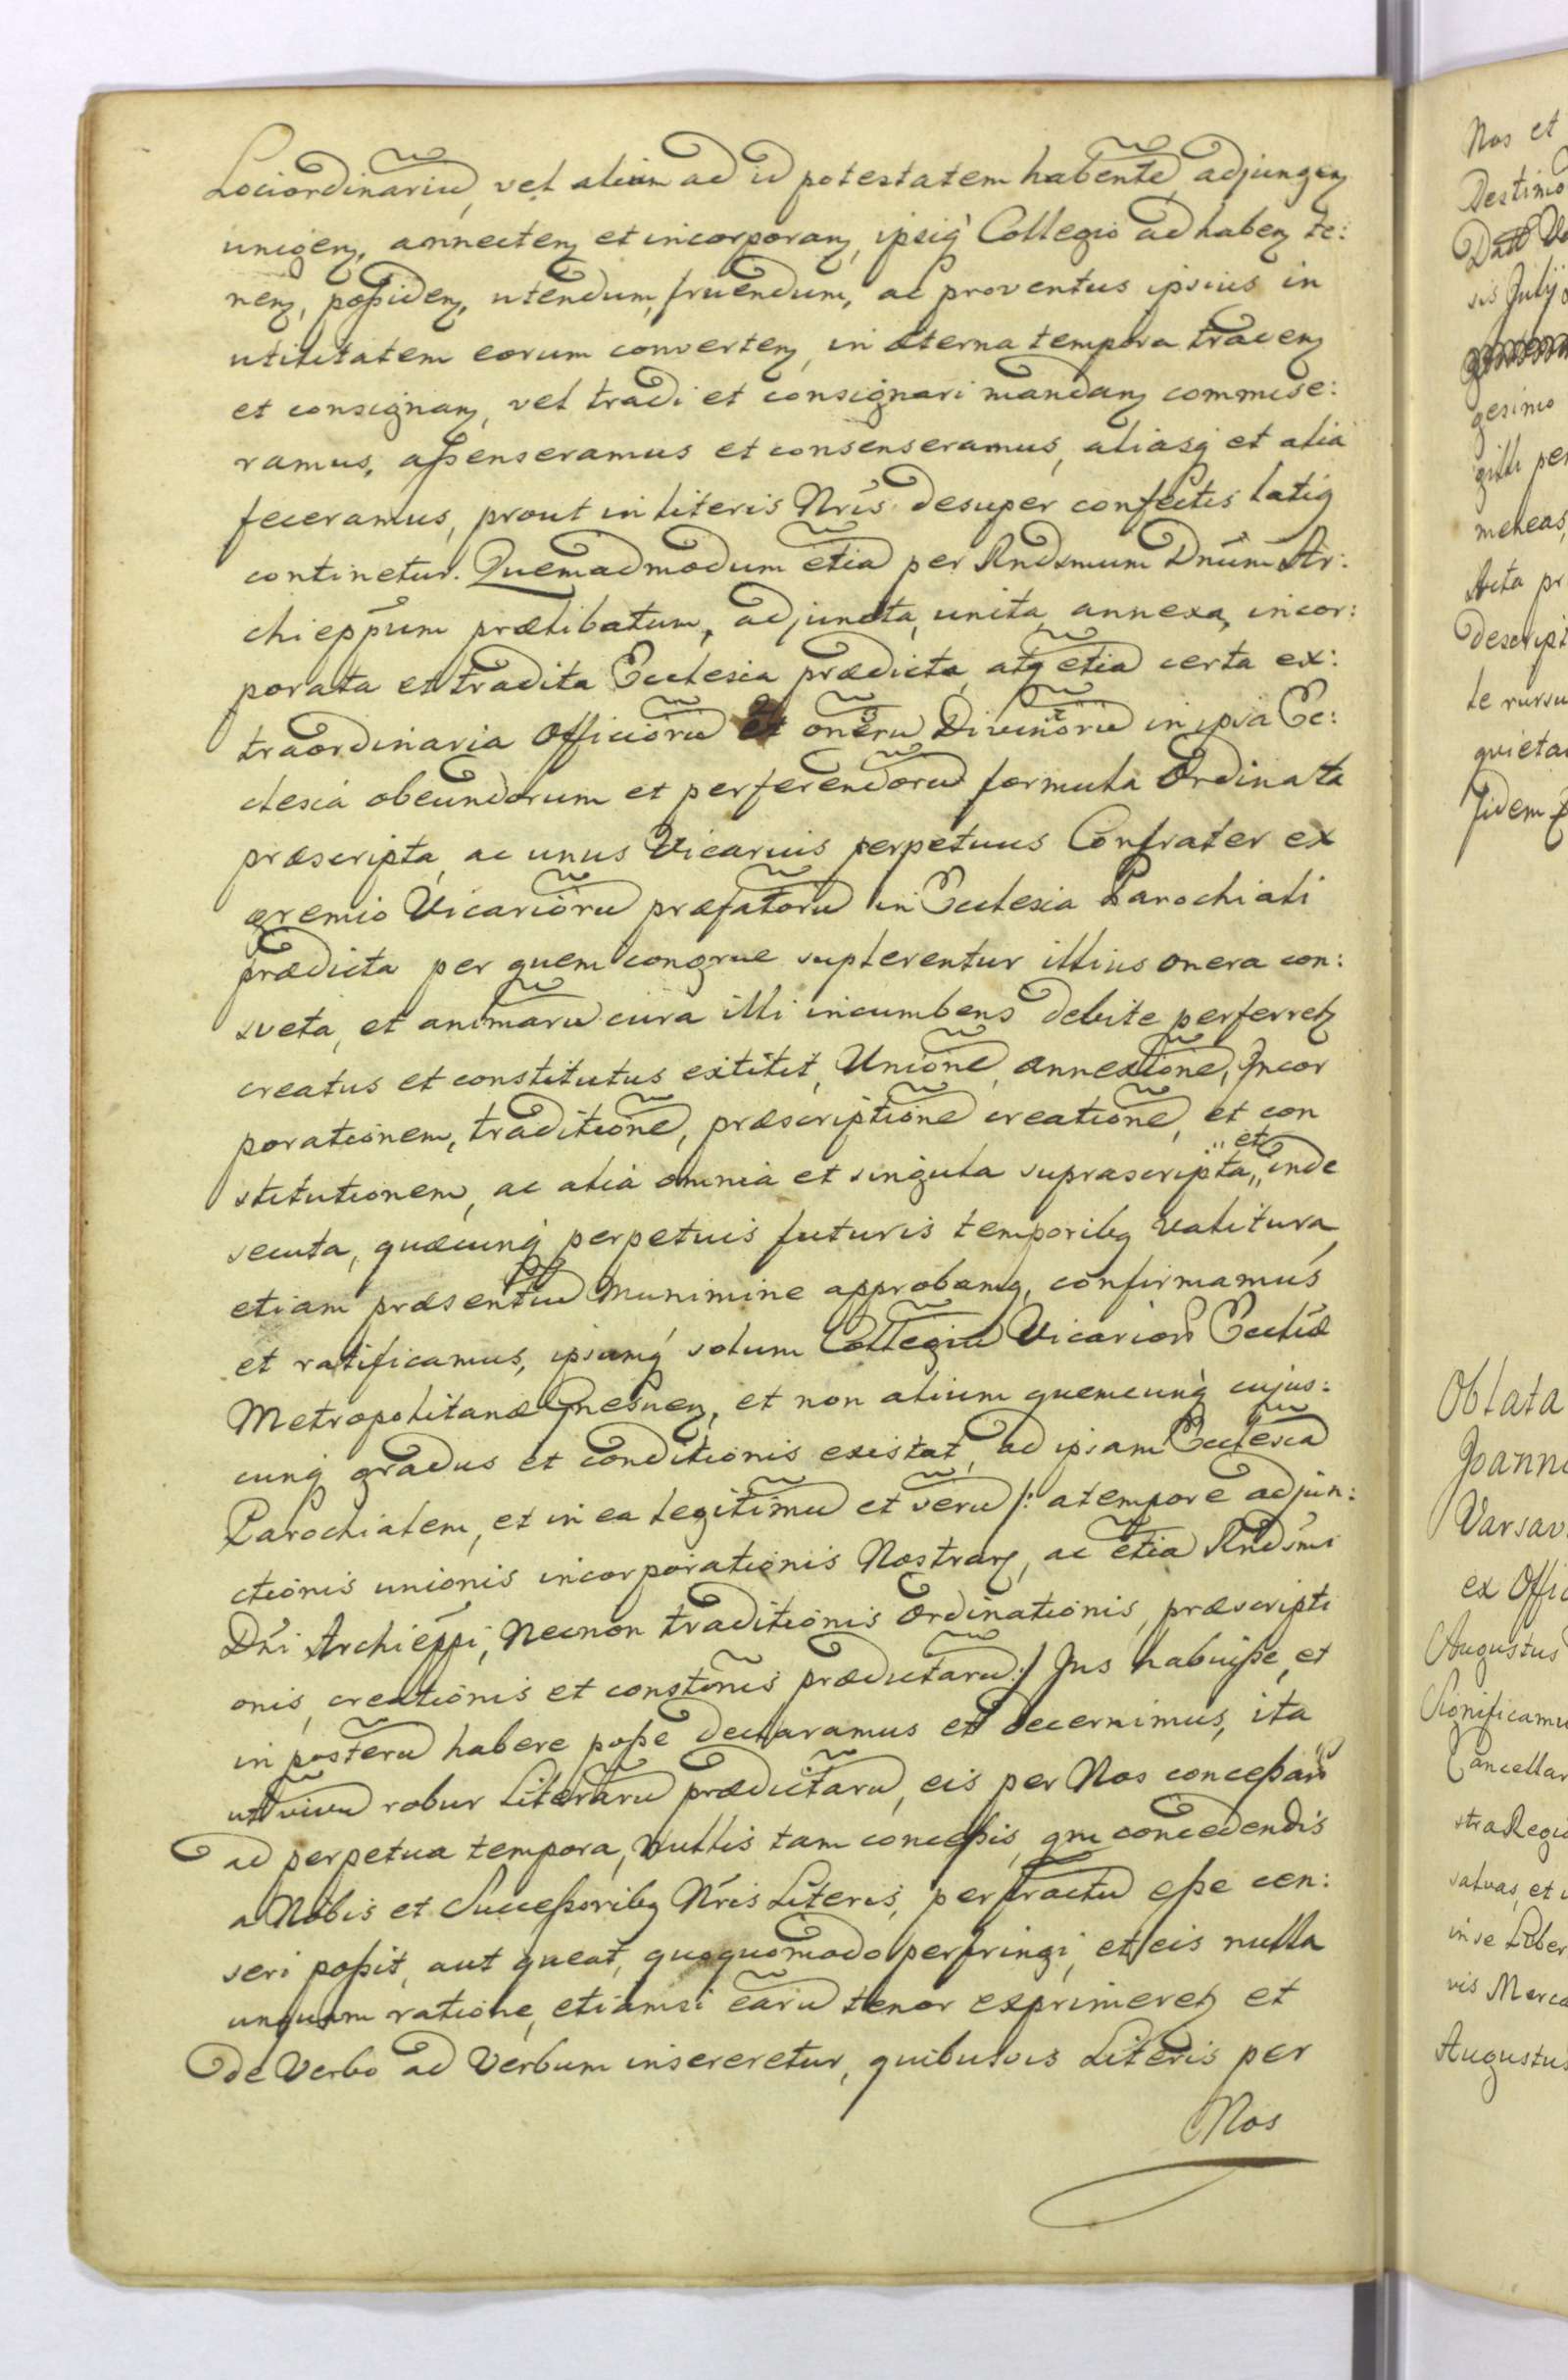 Lociordinariũ, vel alium ad id potestatem habentẽ, adjungenȝ
unigenȝ, annectenȝ et incorporanȝ, ipsiq́ Collegio ad habenȝ te:
nenȝ, poßidenȝ, utendum, fruendum, ac proventus ipsius in
utilitatem eorum convertenȝ, in æterna tempora tradenȝ
et consignanȝ, vel tradi et consignari mandanȝ commise:
ramus, aßenseramus et consenseramus, aliasq́ et alia
feceramus, prout in literis Nrĩs desuper confectis latiꝗ
continetur. Quemadmodum etiã per Rndsmum Dnũm Ar:
chieppũm prælibatum, adjuncta, unita, annexa, incor:
porata et tradita Ecclesia prædicta, atq́ etiã certa ex:
traordinaria Officiorũ et onerũ Divinorũ in ipsa Ec:
clesia obeundorum et perferendorũ formula Ordinata
præscripta, ac unus Vicarius perpetuus Confrater ex
gremio Vicariorũ præfatorũ in Ecclesia Parochiali
prædicta per quem congrue suplerentur illius onera con:
sveta, et animarũ cura illi incumbens debite perferretȝ
creatus et constitutus extitit, Unionẽ, annexionẽ, Incor
porationem, traditionẽ, præscriptionẽ creationẽ, et con
stitutionem, ac alia omnia et singula suprascripta,, et inde
secuta, quæcunq́ perpetuis futuris temporibꝗ valitura,
etiam præsentiũ munimine approbamꝗ, confirmamus
et ratificamus, ipsumq́ solum Collegiũ Vicarior̃ Ecclĩæ
Metropolitanæ Gnesnenȝ, et non alium quemcunq́ cujus:
cunq́ gradus et conditionis existat, ad ipsam Ecclesiã
Parochialem, et in ea legitimũ et verũ /: a tempore adjun:
ctionis unionis incorporationis Nostrarȝ, ac etiã Rndsmi
Dñi Archieppĩ, Necnon traditionis ordinationis, præscripti
onis, creationis et constõnis prædictarũ :/ Jus habuiße, et
in posterũ habere poße declaramus et decernimus, ita
ut vivũ robur Literarũ prædictarũ, eis per Nos conceßar̃
ad perpetua tempora, Nullis tam conceßis, qm concedendis
a Nobis et Succeßoribꝗ Nr̃is Literis, perfractũ eße cen:
seri poßit, aut queat, quoquomodo perfringi, et eis nulla
unquam ratione, etiamsi earũ tenor exprimeretȝ et
de Verbo ad Verbum insereretur, quibusvis Literis per
Nos
Nos et
Destino
Datt
sis Julij
gesimo
gilli per
meheas
Acta pr
descript
le rursu
quietat
fidem
Oblata
Joanne
Varsav
ex Offic
Augustus
Significamu
Cancellar
stra Regia
salvas, et
in se Liber
vis Merca
Augustus